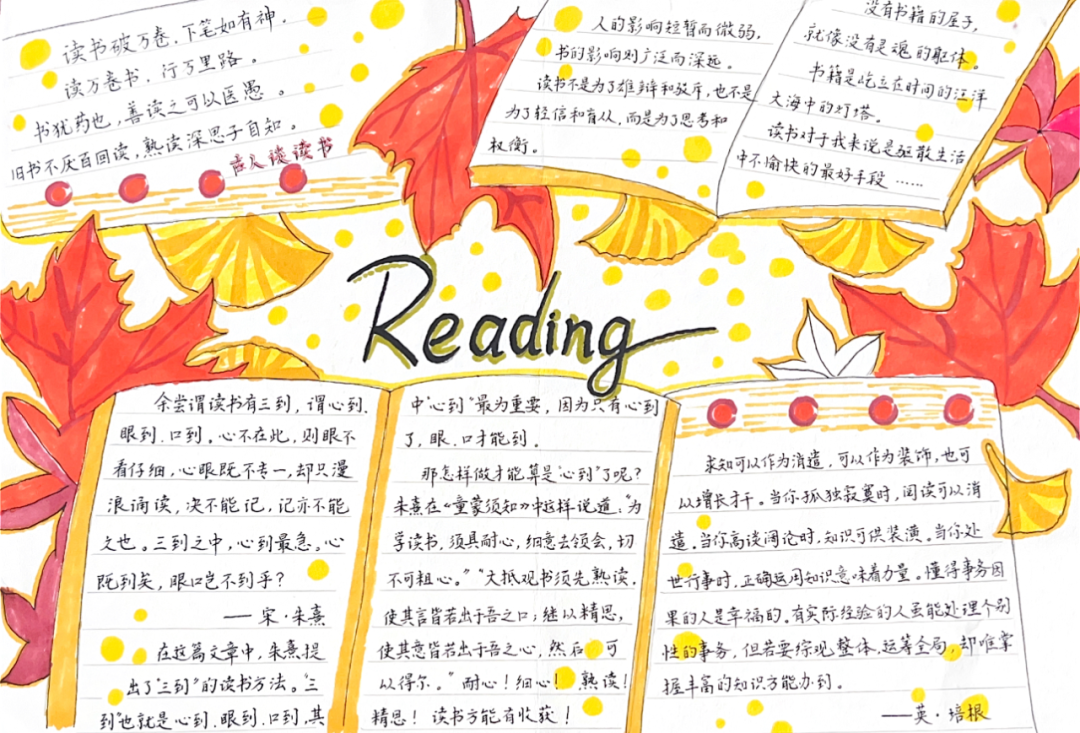 读书破万卷、下笔如有神。
读万卷书，行万里路。
书犹药也，善读之可以医愚。
旧书不厌百回读，熟读深思子自知。
古人谈读书
人的影响短暂而微弱，
书的影响则广泛而深远。
读书不是为了雄辩和驳斥，也不是
为了轻信和盲从，而是为了思考和
权衡。
没有书籍的屋子，
就像没有灵魂的躯体。
书籍是屹立在时间的汪洋
大海中的灯塔。
读书对于我来说是驱散生活
中不愉快的最好手段……
Reading
余尝谓读书有三到，谓心到、
眼到、口到。心不在此，则眼不
看仔细，心眼既不专一，却只漫
浪诵读，决不能记，记亦不能
久也。三到之中，心到最急。心
既到矣，眼口岂不到乎？
——宋·朱熹
在这篇文章中，朱熹提
出了“三到”的读书方法。“三
到”也就是心到、眼到、口到，其
中“心到”最为重要，因为只有心到
了，眼、口才能到。
那怎样做才能算是“心到”了呢？
朱熹在《童蒙须知》中这样说道：“为
学读书，须具耐心，细意去领会，切
不可粗心。”“大抵观书须先熟读，
使其言皆若出于吾之口；继以精思，
使其意皆若出于吾之心，然后可
以得尔。”耐心！细心！熟读！
精思！读书方能有收获！
求知可以作为消遣，可以作为装饰，也可
以增长才干。当你孤独寂寞时，阅读可以消
遣。当你高谈阔论时，知识可供装潢。当你处
世行事时，正确运用知识意味着力量。懂得事务因
果的人是幸福的。有实际经验的人虽能处理个别
性的事务，但若要综观整体，运筹全局，却唯掌
握丰富的知识方能办到。
——英·培根